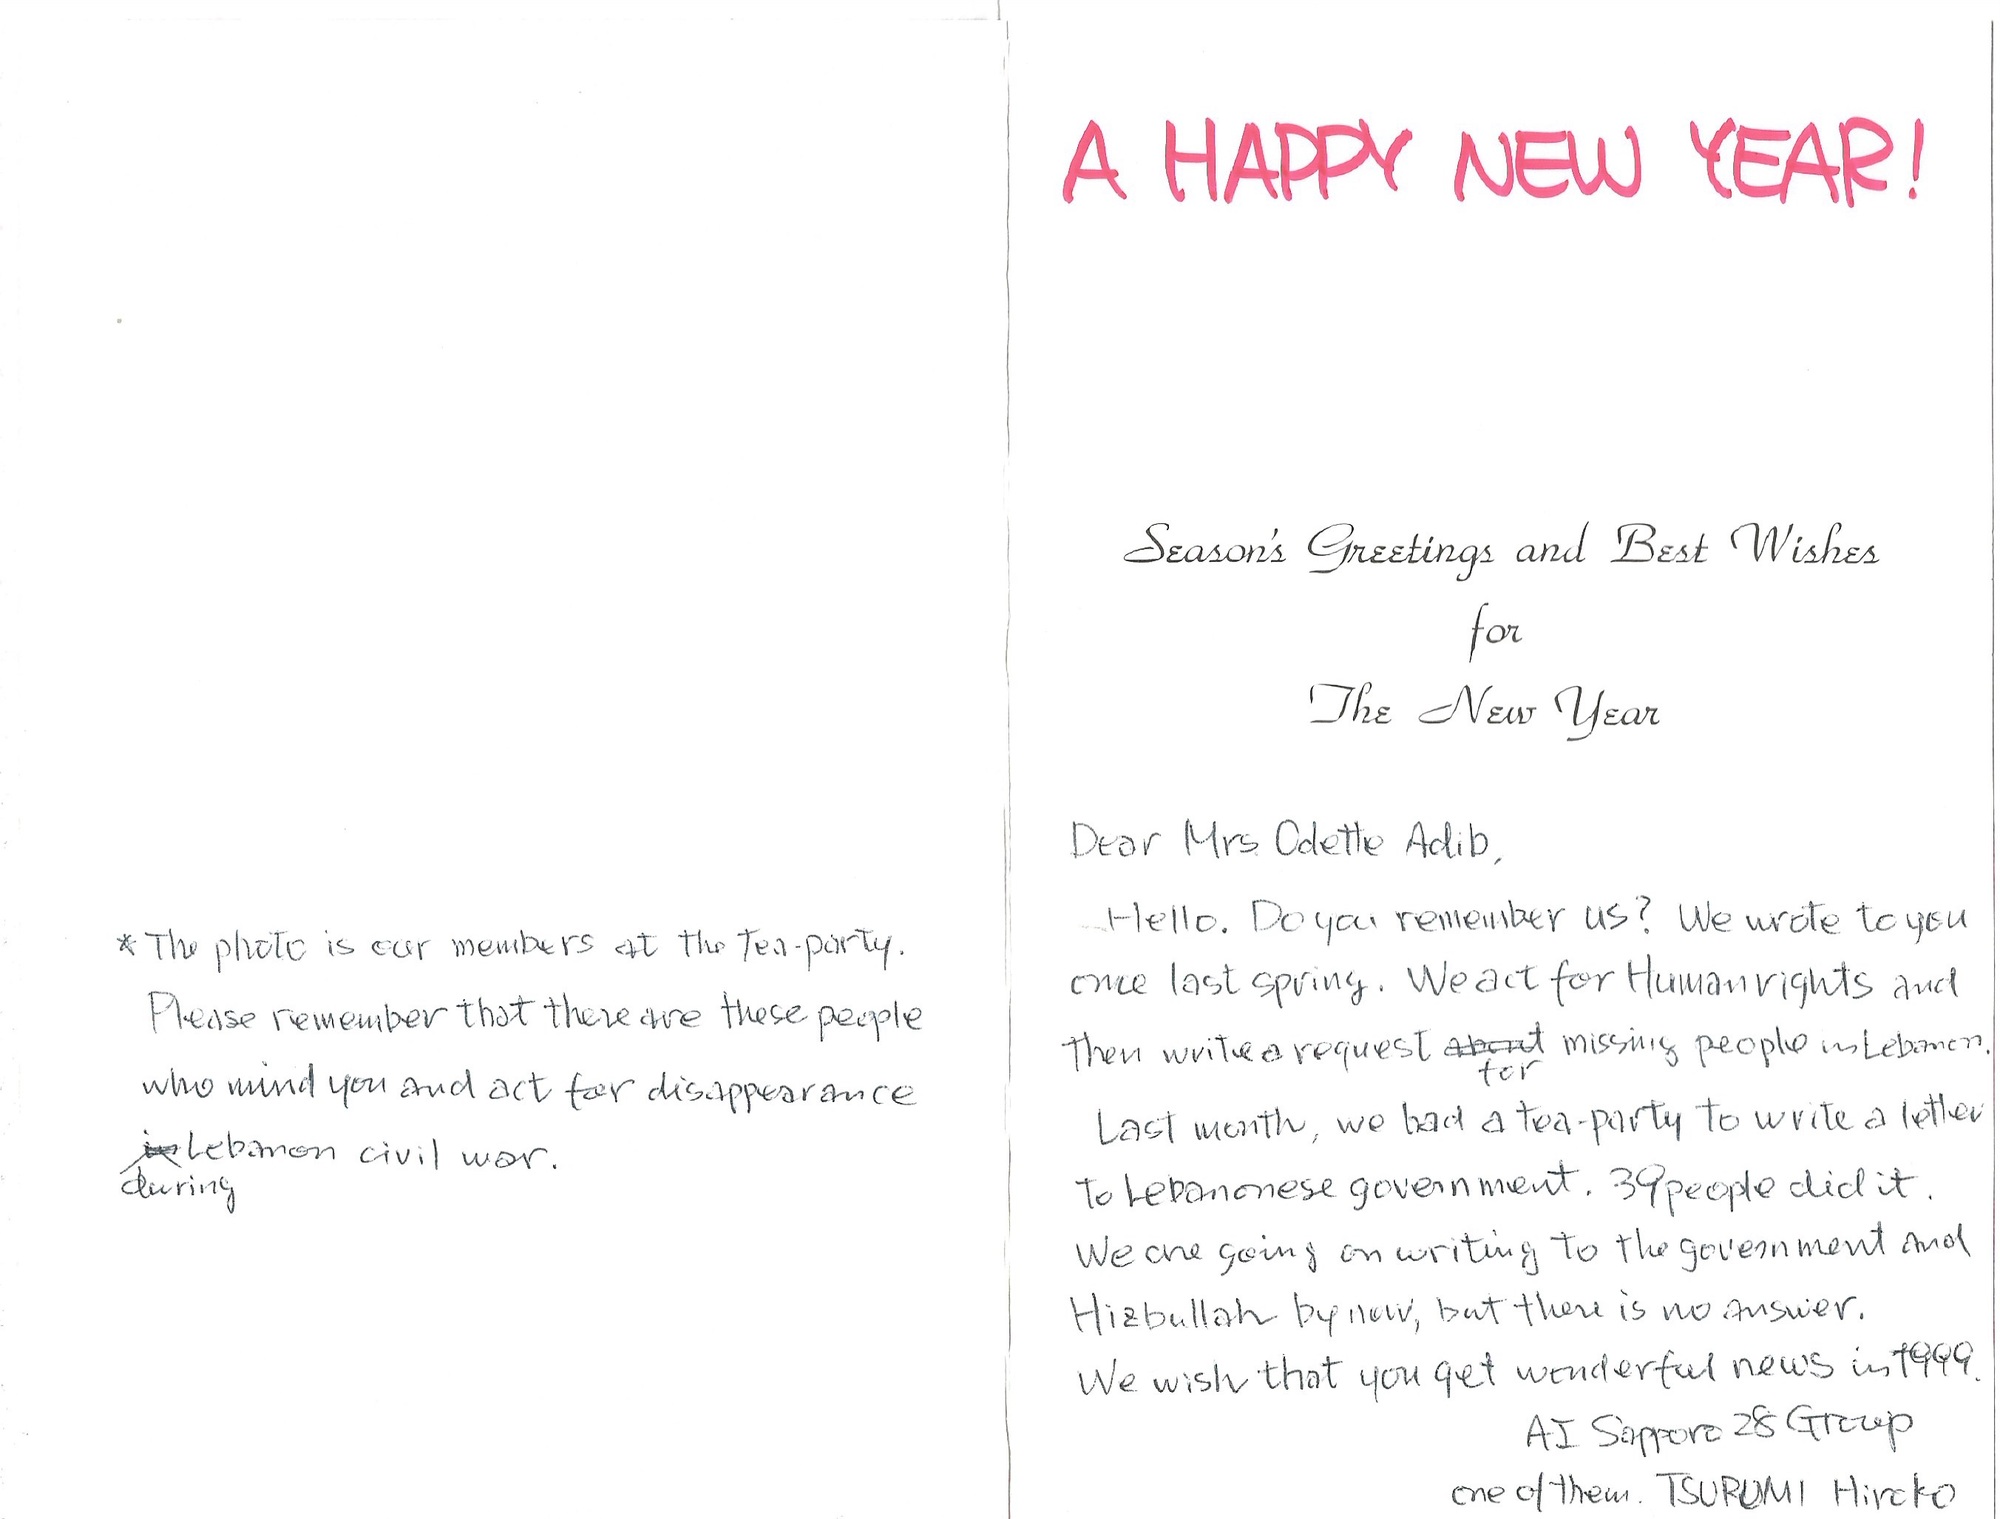 * The photo is our members at the Tea-party.
Please remember that there are these people
who mind you and act for disappearance
in Lebanon civil war.
during
A HAPPY NEW YEAR!
Season's Greetings and Best Wishes
for
The New Year
Dear Mrs Odette Adib,
Hello. Do you remember us? We wrote to you
once last spring. We act for Human rights and
then write a request about missing people in Lebanon.
for
Last month, we had a tea-party to write a letter
to Lebanonese government. 39 people did it.
We are going on writing to the government and
Hizbullah by now, but there is no answer.
We wish that you get wonderful news in 1999.
AI Sapporo 28 Group
one of them. TSURUMI Hiroko